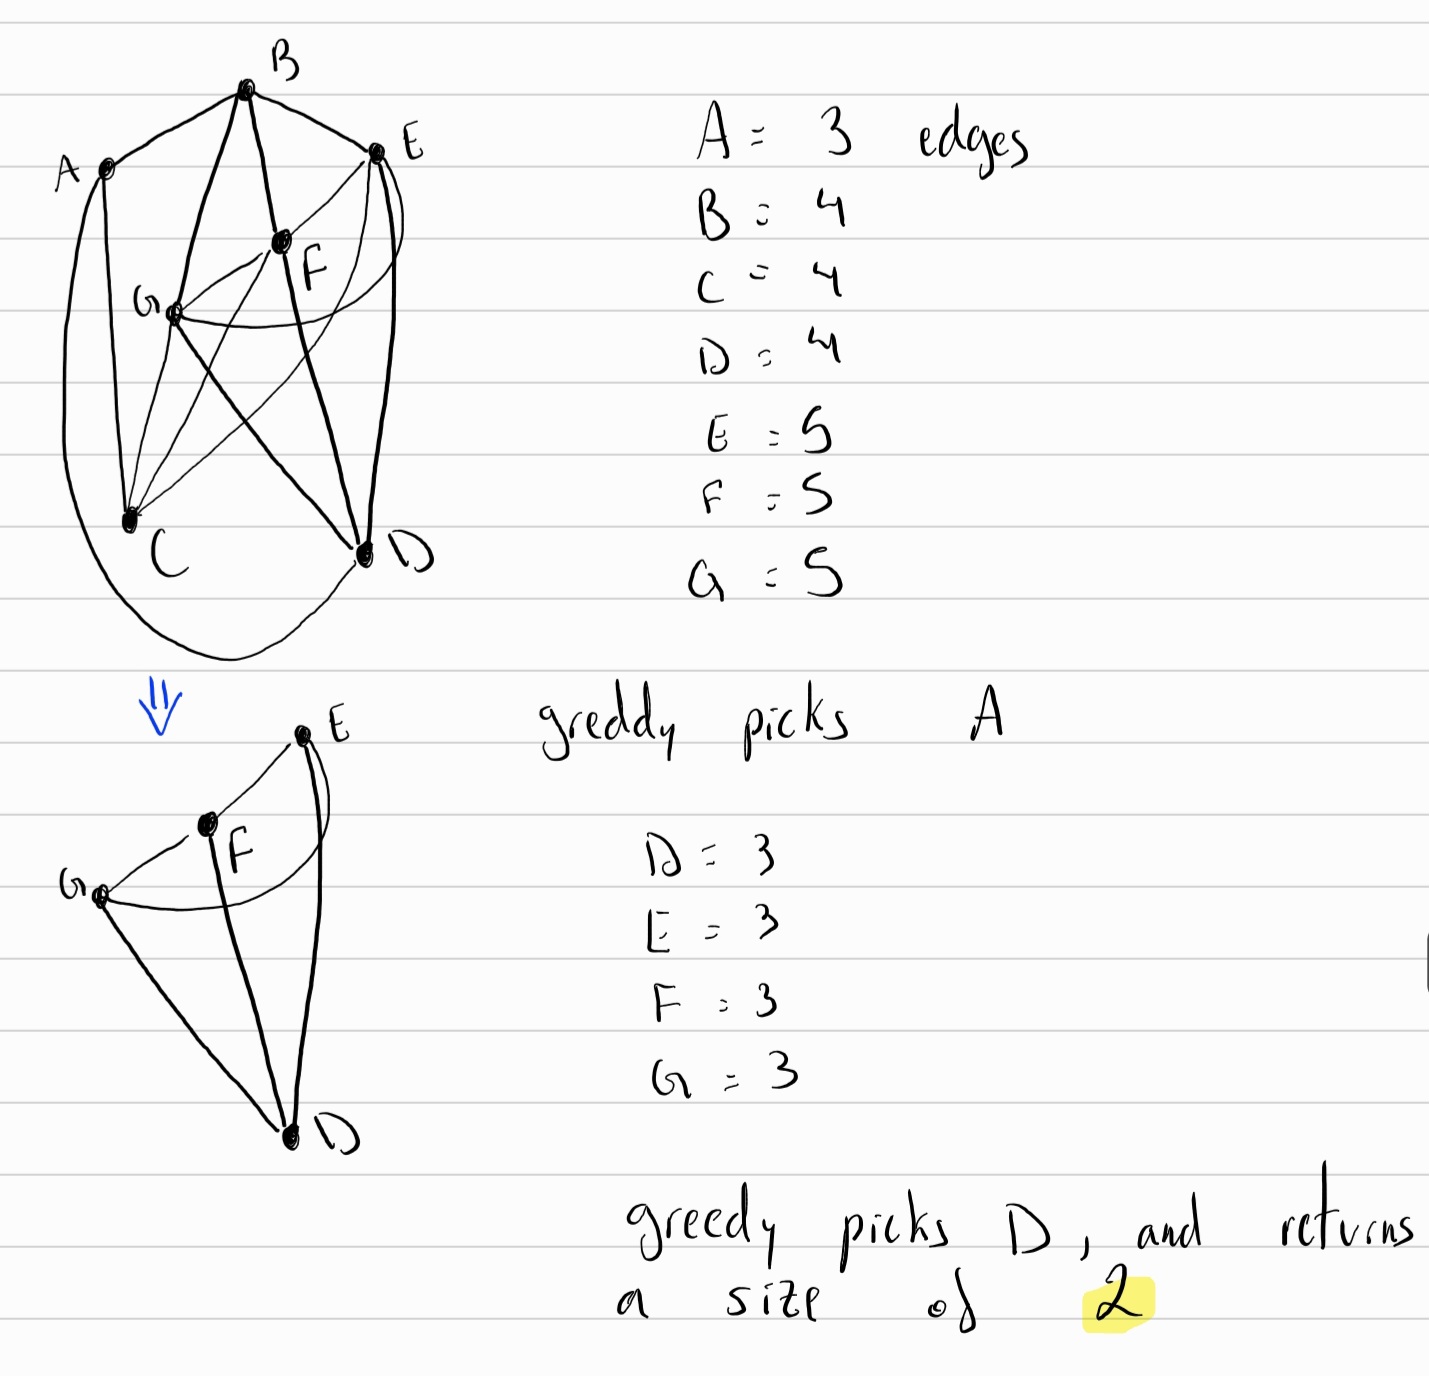 B
E
A
F
G
C
D
A = 3 edges
B = 4
C = 4
D = 4
E = 5
F = 5
G = 5
greddy picks A
E
F
G
D
D = 3
E = 3
F = 3
G = 3
greedy picks D, and returns
a size of 2